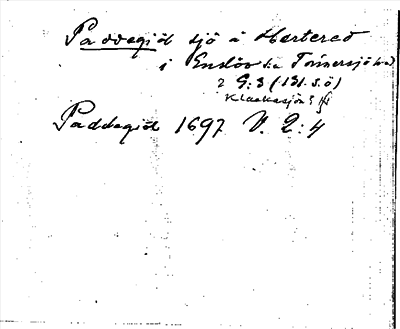 Paddegiöl sjö å Hertered
i Enslöv s:n Tönnersjö hd
2 G:3 (131. S. Ö)
Klackasjön
Paddegiöl 1697 V. 2:4